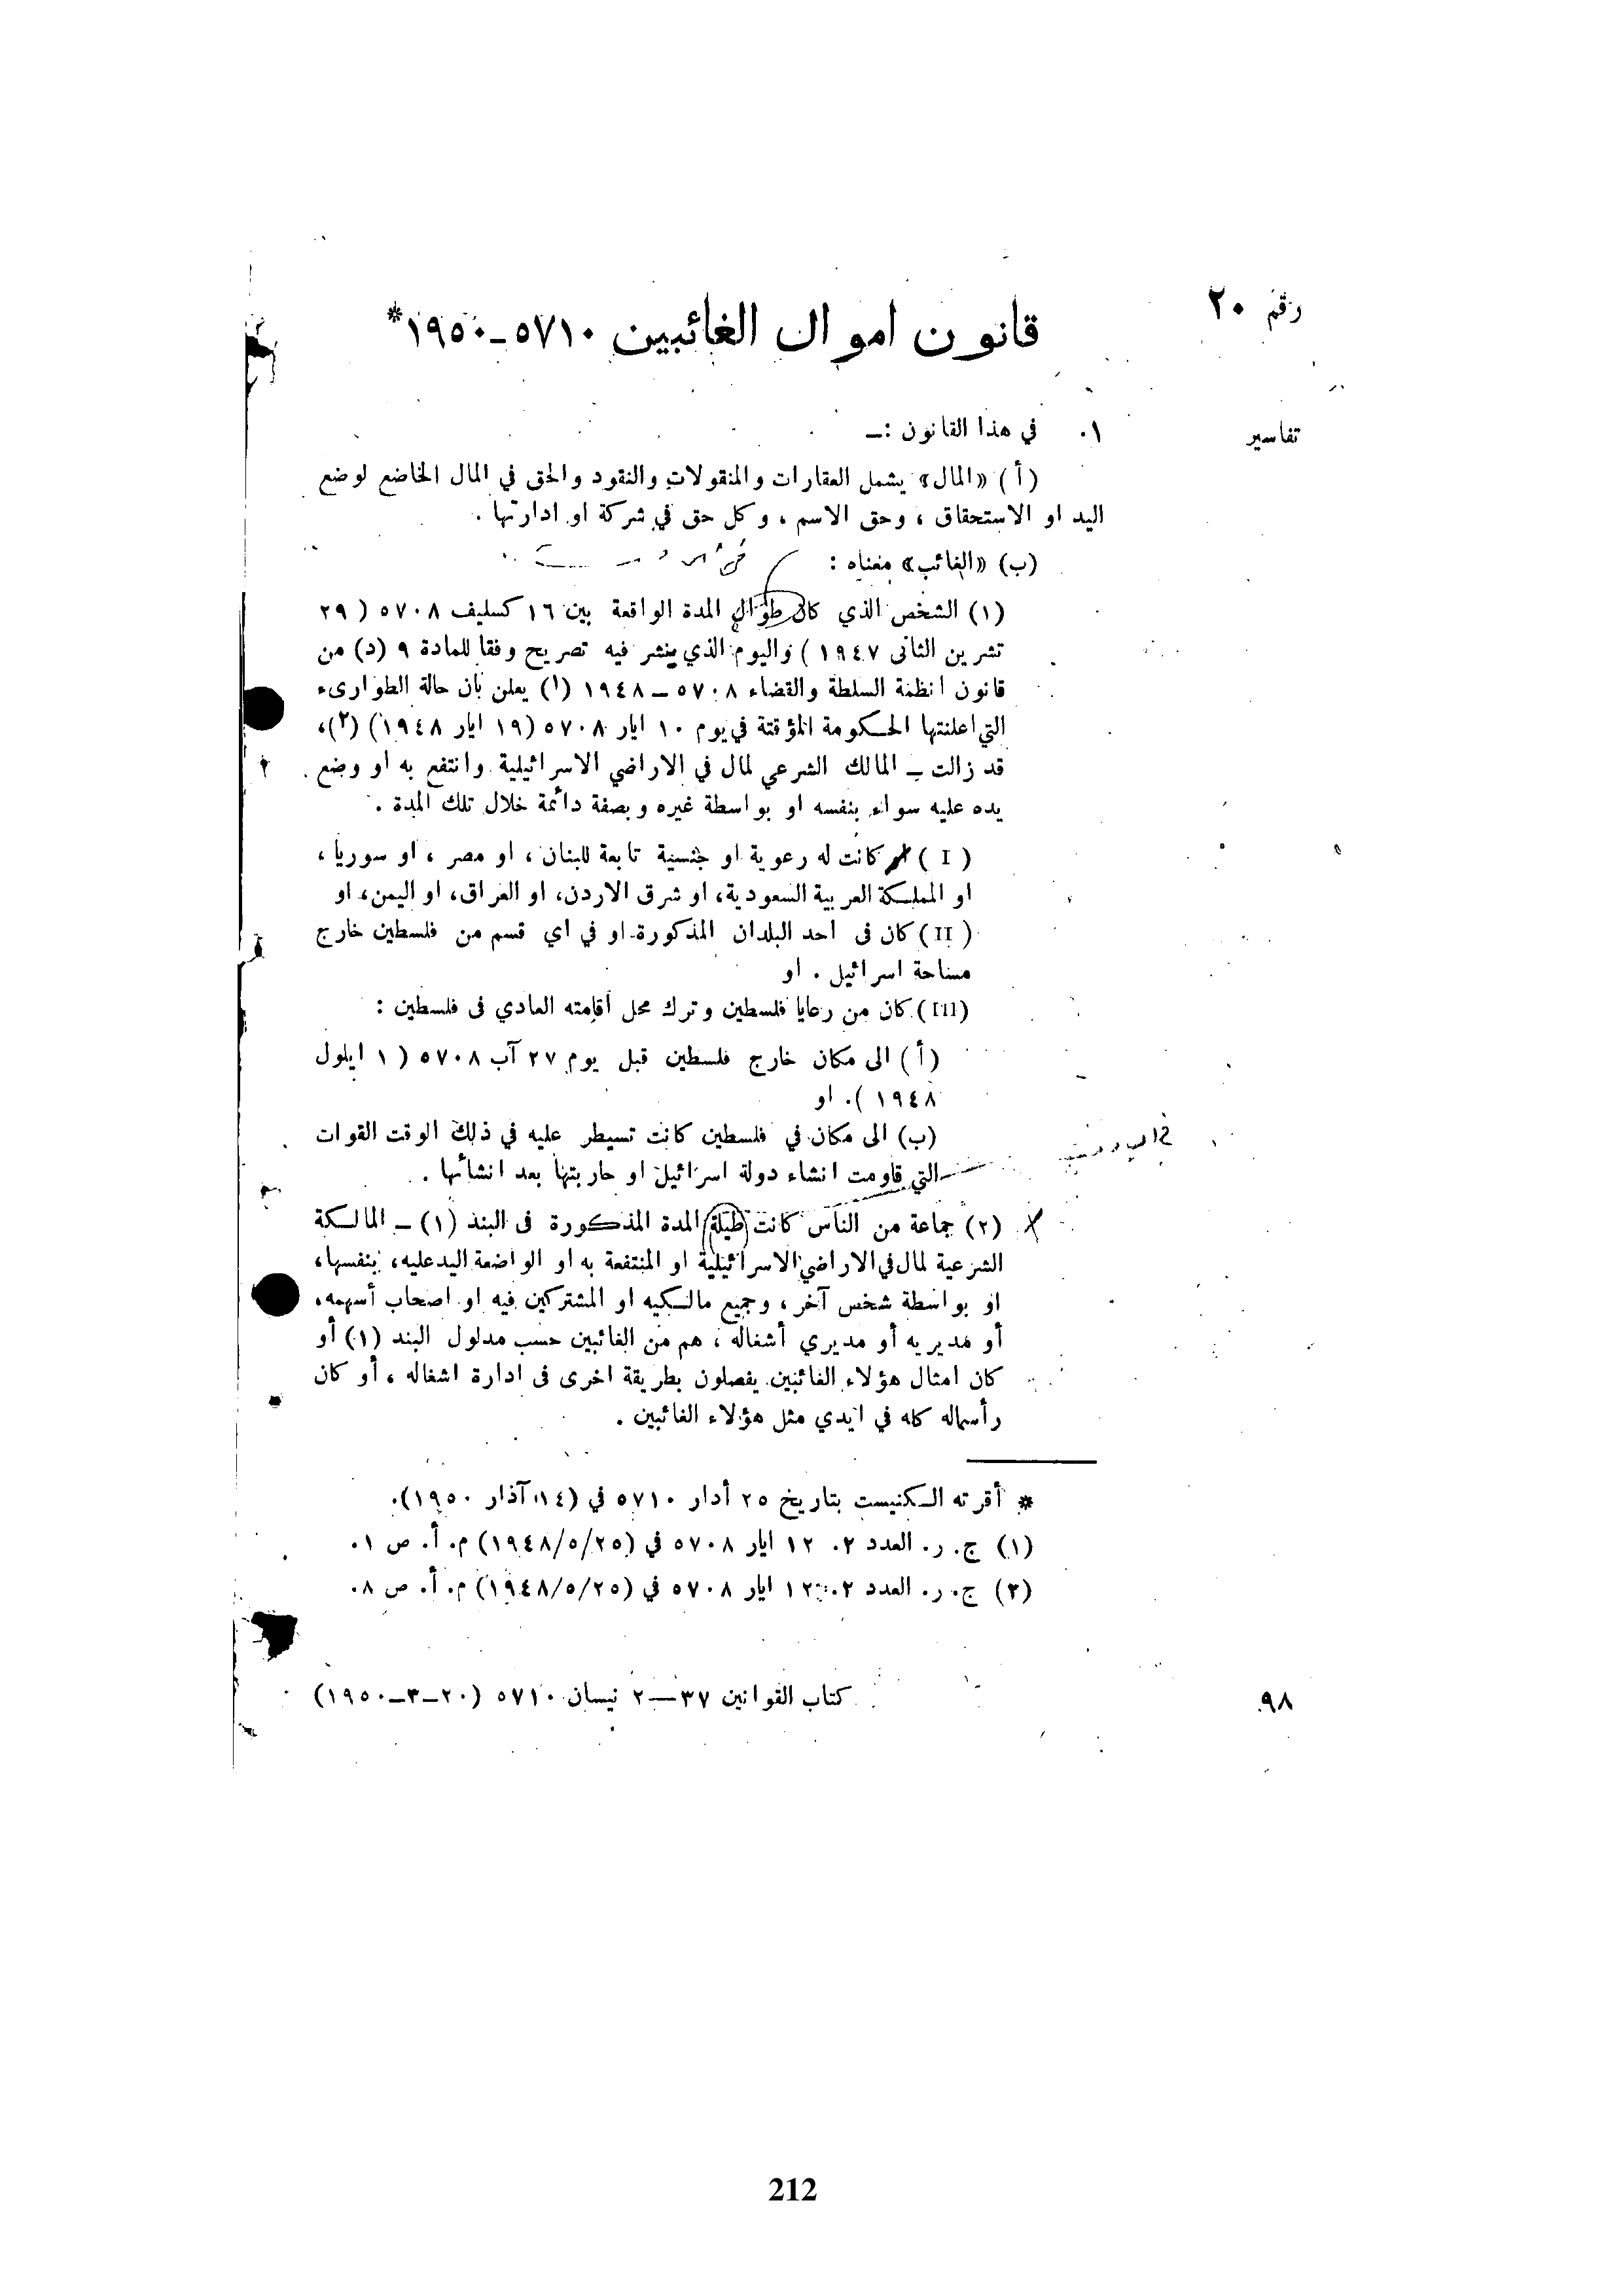 رقم ٢٠
قانون اموال الغائبين ٥٧١٠-١٩٥٠*
تفاسير
١. في هذا القانون :ـ
(أ) «المال» يشمل العقارات والمنقولات والنقود والحق في المال الخاضع لوضع
اليد او الاستحقاق ، وحق الاسم ، وكل حق في شركة او ادارتها .
(ب) «الغائب» معناه :
(١) الشخص الذي كان طوال المدة الواقعة بين ١٦ كسليف ٥٧٠٨ (٢٩
تشرين الثانى ١٩٤٧) واليوم الذي ينشر فيه تصريح وفقا للمادة ٩ (د) من
قانون انظمة السلطة والقضاء ٥٧٠٨ــ١٩٤٨ (١) يعلن بأن حالة الطوارىء
التي اعلنتها الحكومة المؤقتة في يوم ١٠ ايار ٥٧٠٨ (١٩ ايار ١٩٤٨) (٢)،
قد زالت ـ المالك الشرعي لمال في الاراضي الاسرائيلية وانتفع به او وضع
يده عليه سواء بنفسه او بواسطة غيره وبصفة دائمة خلال تلك المدة .
( I ) كانت له رعوية او جنسية تابعة للبنان ، او مصر ، او سوريا ،
او المملكة العربية السعودية، او شرق الاردن، او العراق، او اليمن، او
( II ) كان فى احد البلدان المذكورة او في اي قسم من فلسطين خارج
مساحة اسرائيل . او
(III) كان من رعايا فلسطين وترك محل أقامته العادي فى فلسطين :
(أ) الى مكان خارج فلسطين قبل يوم ٢٧ آب ٥٧٠٨ (١ ايلول
١٩٤٨). او
(ب) الى مكان في فلسطين كانت تسيطر عليه في ذلك الوقت القوات
التي قاومت انشاء دولة اسرائيل او حاربتها بعد انشأئها .
(٢) جماعة من الناس كانت طيلة المدة المذكورة فى البند (١) ـ المالكة
الشرعية لمال في الاراضي الاسرائيلية او المنتفعة به او الواضعة اليد عليه، بنفسها،
او بواسطة شخص آخر ، وجميع مالكيه او المشتركين فيه او اصحاب أسهمه،
أو مديريه أو مديري أشغاله ، هم من الغائبين حسب مدلول البند (١) أو
كان امثال هؤلاء الغائبين يفصلون بطريقة اخرى فى ادارة اشغاله ، أو كان
رأسماله كله في ايدي مثل هؤلاء الغائبين .
* أقرته الكنيست بتاريخ ٢٥ أدار ٥٧١٠ في (١٤ آذار ١٩٥٠).
(١) ج. ر. العدد ٢. ١٢ ايار ٥٧٠٨ في (١٩٤٨/٥/٢٥) م. أ. ص ١.
(٢) ج. ر. العدد ٢. ١٢ ايار ٥٧٠٨ في (١٩٤٨/٥/٢٥) م. أ. ص ٨.
٩٨ كتاب القوانين ٣٧ــ٢ نيسان ٥٧١٠ (٢٠ـ٣ـ١٩٥٠)
212